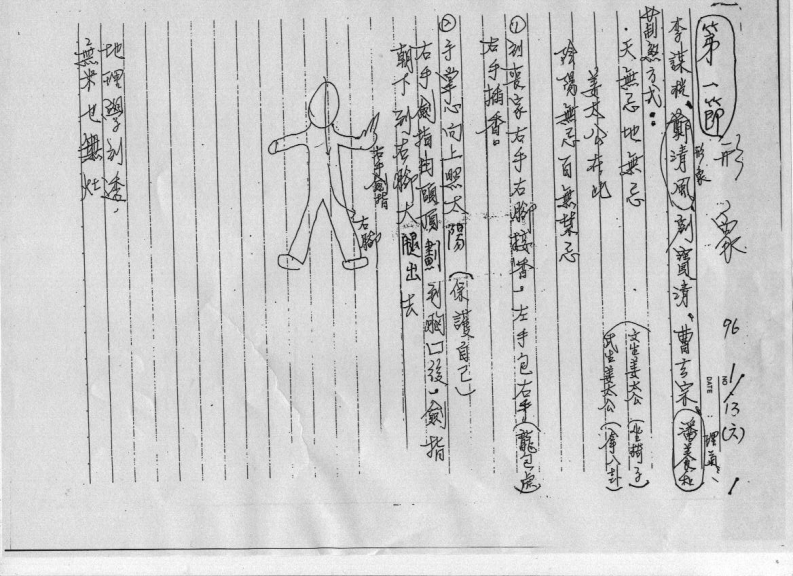 第一節 形家 96 1/13(六) 1
NO
DATE
李謀 鄭清風 劉寶清、曹 宗 潘
形家 理氣
制煞方式:
・天無忌地無忌 文生姜太公(坐椅子)
姜太公在此 武生姜太公(拿八卦)
陰陽無忌百無禁忌
①到喪家右手右腳接香。左手包右手(龍包虎)
右手插香。
②手掌心向上照太陽(保護自己)
右手劍指由頭頂劃到胸口後。劍指
朝下到右腳大腿出去
右手劍指
右腳
地理學到透,
無米也無灶